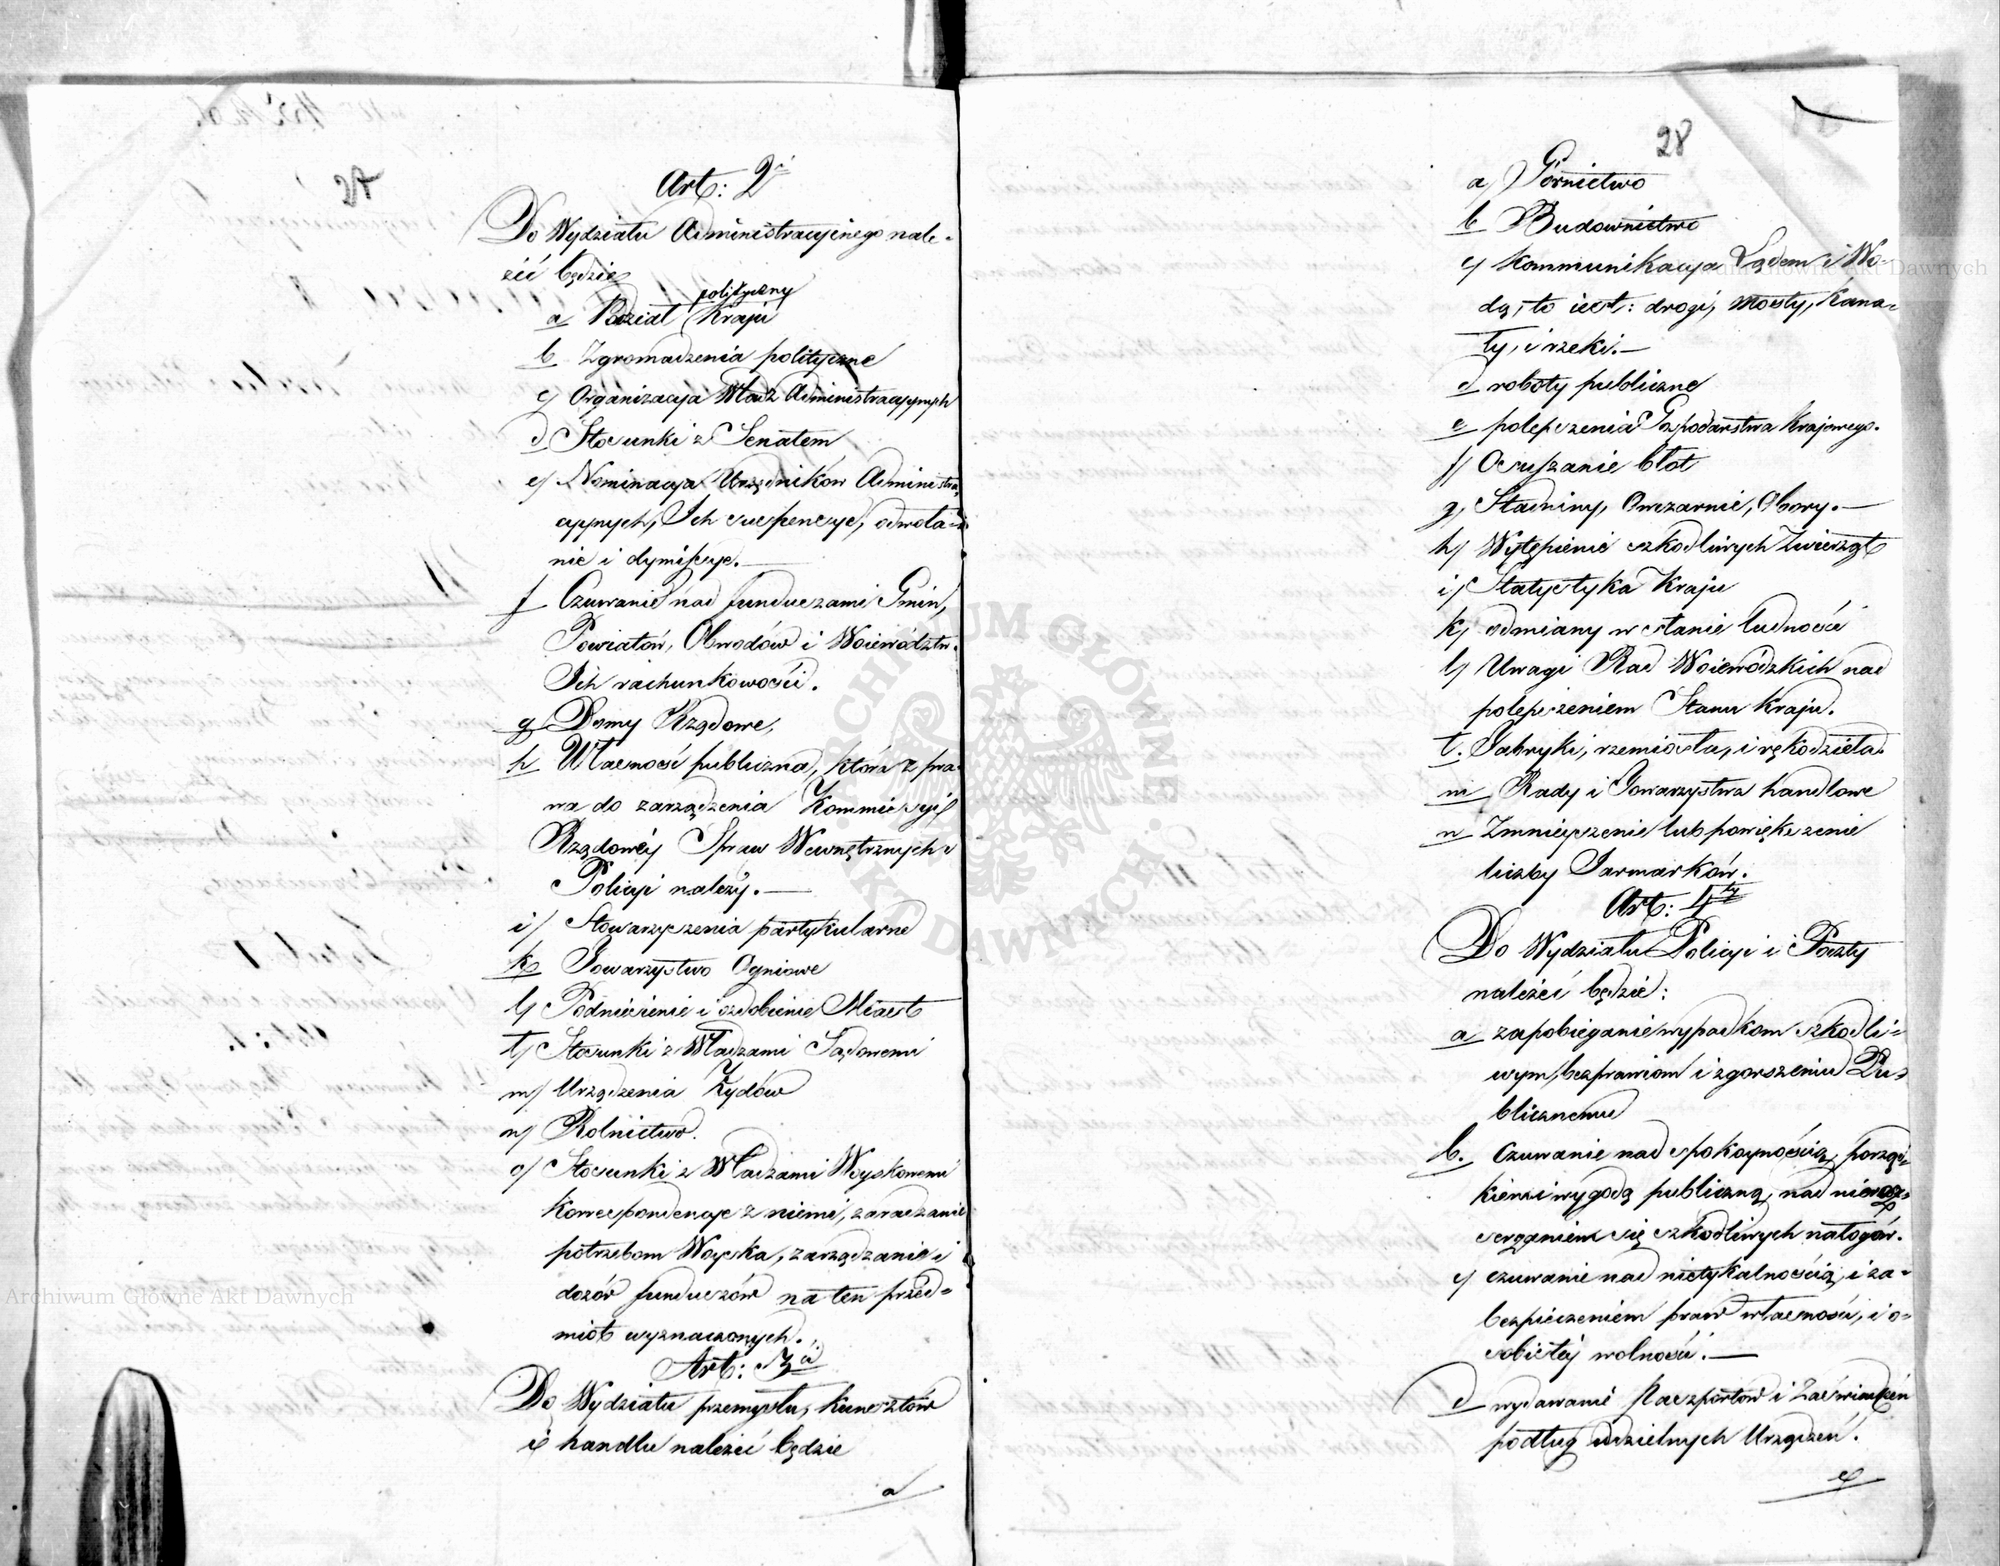 27
Art: 2i
Do Wydziału Administracyinego nale-
żéć będzie
polityczny
a Podział Kraju
b Zgromadzenia polityczne
c/ Organizacyja Władz Administracyjnych
d Stosunki z Senatem
e/ Nominacyja Urzędników Administra-
cyjnych, Ich suspensye, odwoła-
nie i dymissye.—
f Czuwanie nad funduszami Gmin,
Powiatów, Obwodów i Woiewództw.
Ich rachunkowości.
g Domy Rządowe,
h Własność publiczna, która z pra-
wa do zarządzenia Kommissyi
Rządowéy Spraw Wewnętrznych i
Policyi należy.—
i/ Stowarzyszenia partykularne
k Towarzystwo Ogniowe
l/ Podniesienie i ozdobienie Miast
ł/ Stosunki z Władzami Sądowemi
m/ Urządzenia Żydów
n/ Rolnictwo.
o/ Stosunki z Władzami Woyskowemi
korrespondencye z niemi, zaradzanie
potrzebom Woyska, zarządzanie i
dozór funduszów na ten przed-
miot wyznaczonych.
Art: 3ci
Do Wydziału przemysłu, kunsztów
i handlu należéć będzie
a
28
a/ Górnictwo
b Budownictwo
c/ Kommunikacyja Lądem i Wo-
dą, to iest: drogi, mosty, kana-
ły, i rzeki.—
d roboty publiczne
e polepszenia Gospodarstwa Krajowego.
f/ Osuszanie błot
g, Stadniny, Owczarnie, Obory.—
h/ Wytępienie szkodliwych Zwierząt
i/ Statystyka Kraju
k/ odmiany w stanie ludności
l/ Uwagi Rad Woiewódzkich nad
polepszeniem Stanu Kraju.
ł. Fabryki, rzemiosła, i rękodzieła.
m Rady i Towarzystwa handlowe
n Zmnieyszenie lub powiększenie
liczby Jarmarków.
Art: 4ty
Do Wydziału Policyi i Poczty
należéć będzie:
a zapobieganie wypadkom szkodli-
wym, bezprawiom i zgorszeniu Pu-
blicznemu
b. czuwanie nad spokoynością, porząd-
kiem i wygodą publiczną, nad nieroz-
szerzaniem się szkodliwych nałogów.
c/ czuwanie nad nietykalnością, i za-
bezpieczeniem praw własności, i o-
sobistéy wolności.—
d wydawanie Paszportów i Zaświadczeń
podług udzielnych Urządzeń.
e
ARCHIWUM GŁÓWNE AKT DAWNYCH
Archiwum Główne Akt Dawnych
Archiwum Główne Akt Dawnych